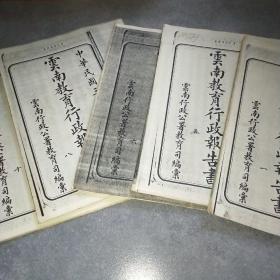 中華民國三
雲南教育行政報
雲南行政公署教育司編纂
八
雲南行政公署教育司編纂
六
雲南教育行政報告書
五
雲南行政公署教育司編纂
報告書
教育司編纂
十